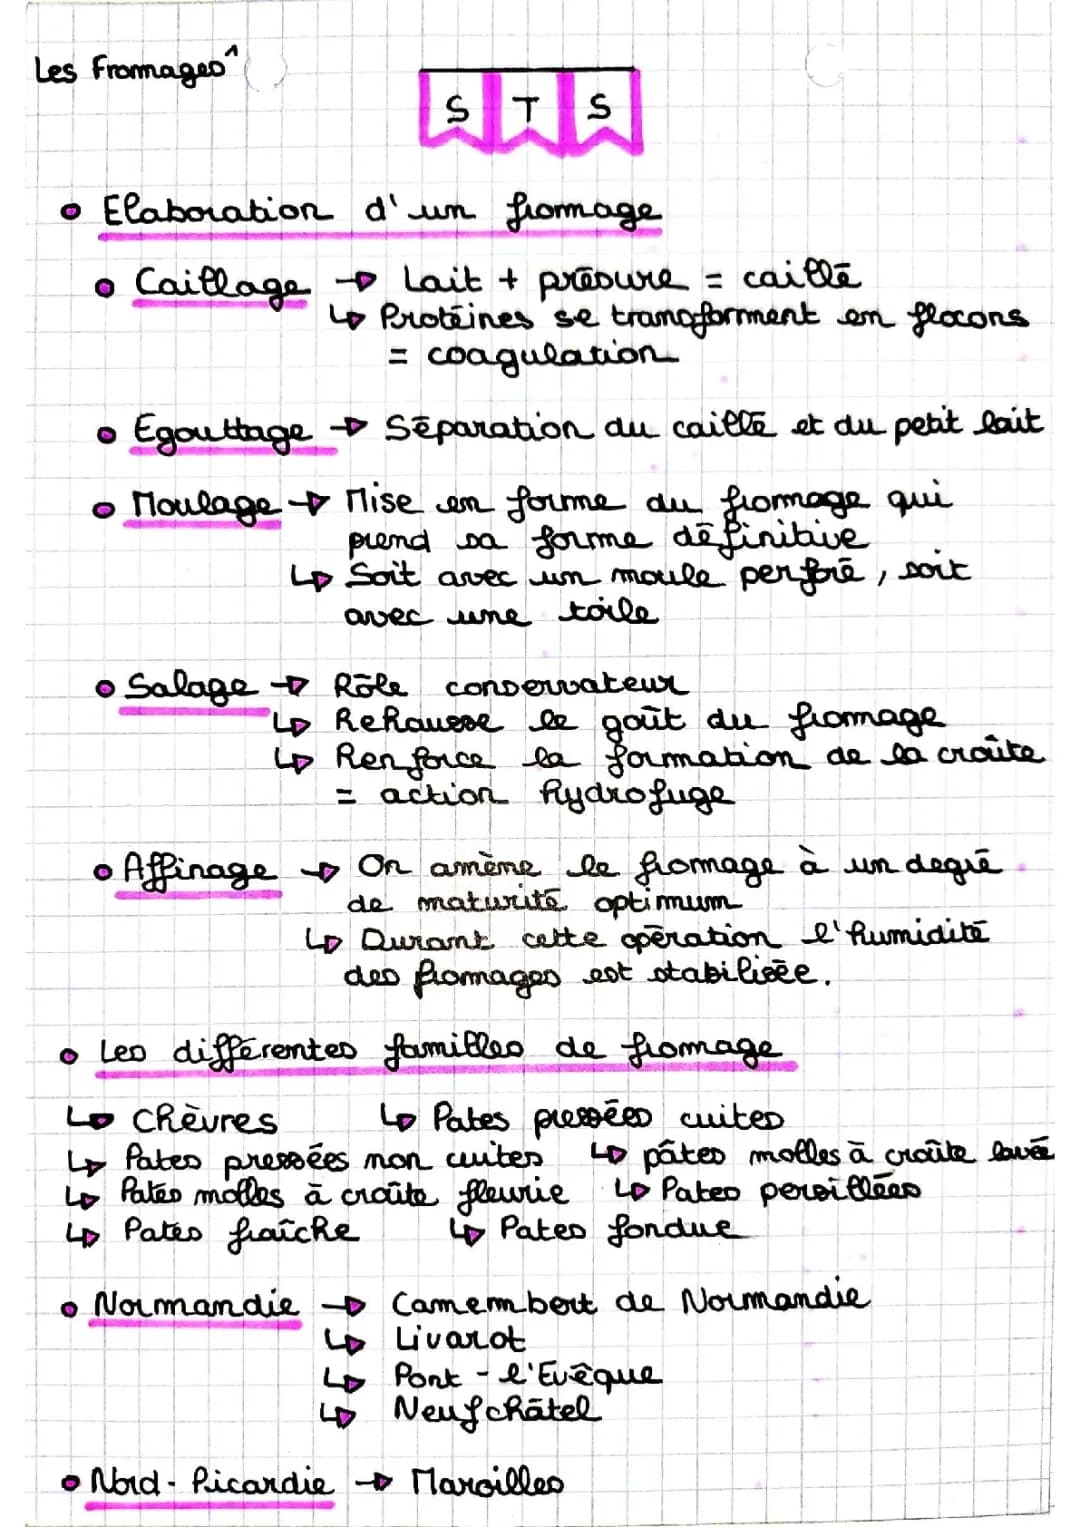 Les Fromages^
S T S
• Elaboration d'un fromage
• Caillage → Lait + présure = caillé
↳ Protéines se transforment en flocons
= coagulation
• Egouttage → Séparation du caillé et du petit lait
• Moulage → Mise en forme du fromage qui
prend sa forme définitive
↳ Soit avec un moule perforé, soit
avec une toile
• Salage → Rôle conservateur
↳ Rehausse le goût du fromage
↳ Renforce la formation de la croûte
= action hydrofuge
• Affinage → On amène le fromage à un degré
de maturité optimum
↳ Durant cette opération l'humidité
des fromages est stabilisée.
• Les différentes familles de fromage
↳ Chèvres ↳ Pates pressées cuites
↳ Pates pressées non cuites ↳ pâtes molles à croûte lavé
↳ Pates molles à croûte fleurie ↳ Pates persillées
↳ Pates fraîche ↳ Pates fondue
• Normandie → Camembert de Normandie
↳ Livarot
↳ Pont-l'Evêque
↳ Neufchâtel
• Nord-Picardie → Maroilles